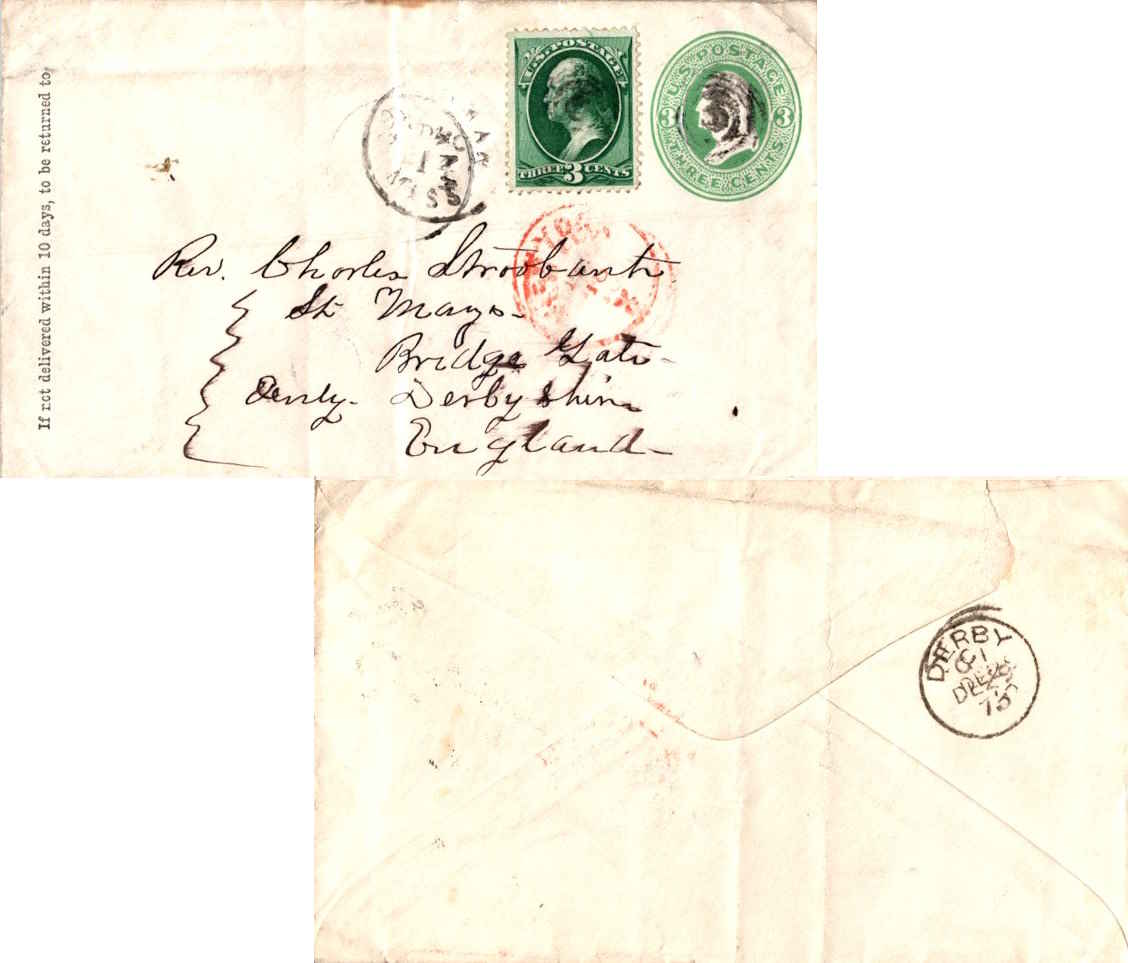 If not delivered within 10 days, to be returned to
U.S. POSTAGE
THREE 3 CENTS
U.S. POSTAGE
3 3
THREE CENTS
Rev. Charles Stroobants
St Marys
Bridge Gate
Derby Derbyshire
England
DERBY
DE 29
75